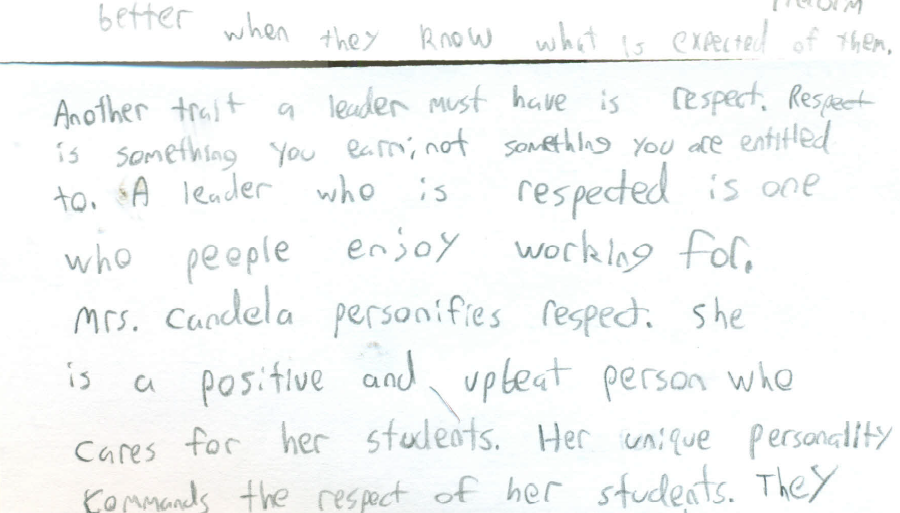 better when they know what is expected of them.
Another trait a leader must have is respect. Respect
is something you earn; not something you are entitled
to. A leader who is respected is one
who peeple enjoy working for.
Mrs. Candela personifies respect. She
is a positive and upbeat person who
cares for her students. Her unique personality
commands the respect of her students. They